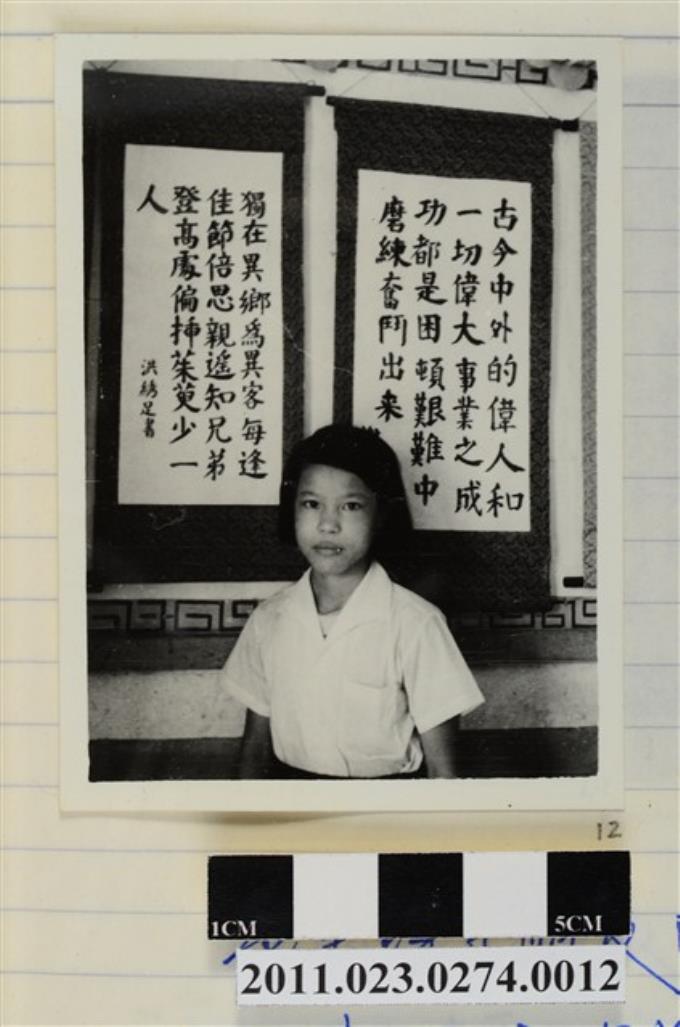 古今中外的偉人和
一切偉大事業之成
功都是困頓艱難中
磨練奮鬥出来
獨在異鄉為異客每逢
佳節倍思親遥知兄弟
登高處偏揷茱萸少一
人
洪綉足書
12
1CM
5CM
2011.023.0274.0012